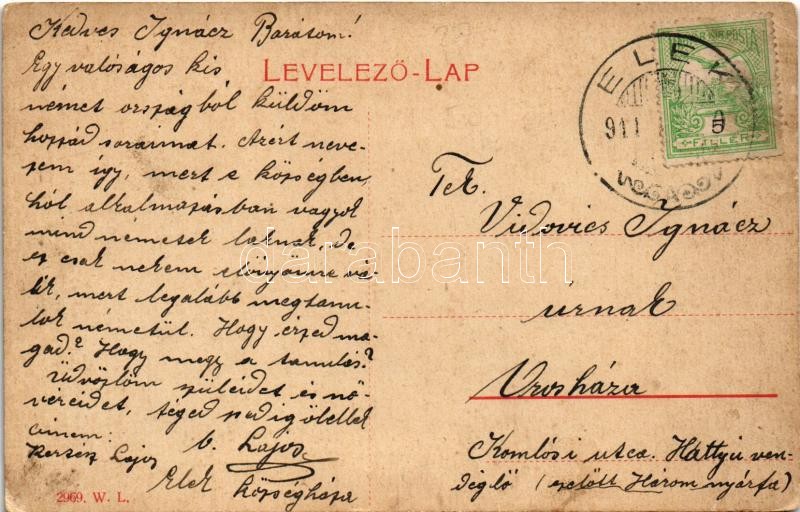 Kedves Ignácz Barátom!
Egy valóságos kis
német országból küldöm
hozzád soraimat. Azért neve-
zem így, mert e községben,
hól alkalmazásban vagyok
mind németek laknak, de
ez csak nekem előnyömre vá-
lik, mert legalább megtanu-
lok németül. Hogy érzed ma-
gad? Hogy megy a tanulás?
Üdvözlöm szüleidet és nő-
véreidet, téged pedig ölellek
b. Lajos
Címem:
Kertész Lajos
Elek Községháza
2969. W. L.
LEVELEZŐ-LAP
MAGYAR KIR. POSTA
5
FILLÉR
ELEK
911
Tek.
Vidovics Ignácz
úrnak
Orosháza
Komlósi utca. Hattyú ven-
déglő (ezelőtt Három nyárfa)
darabanth